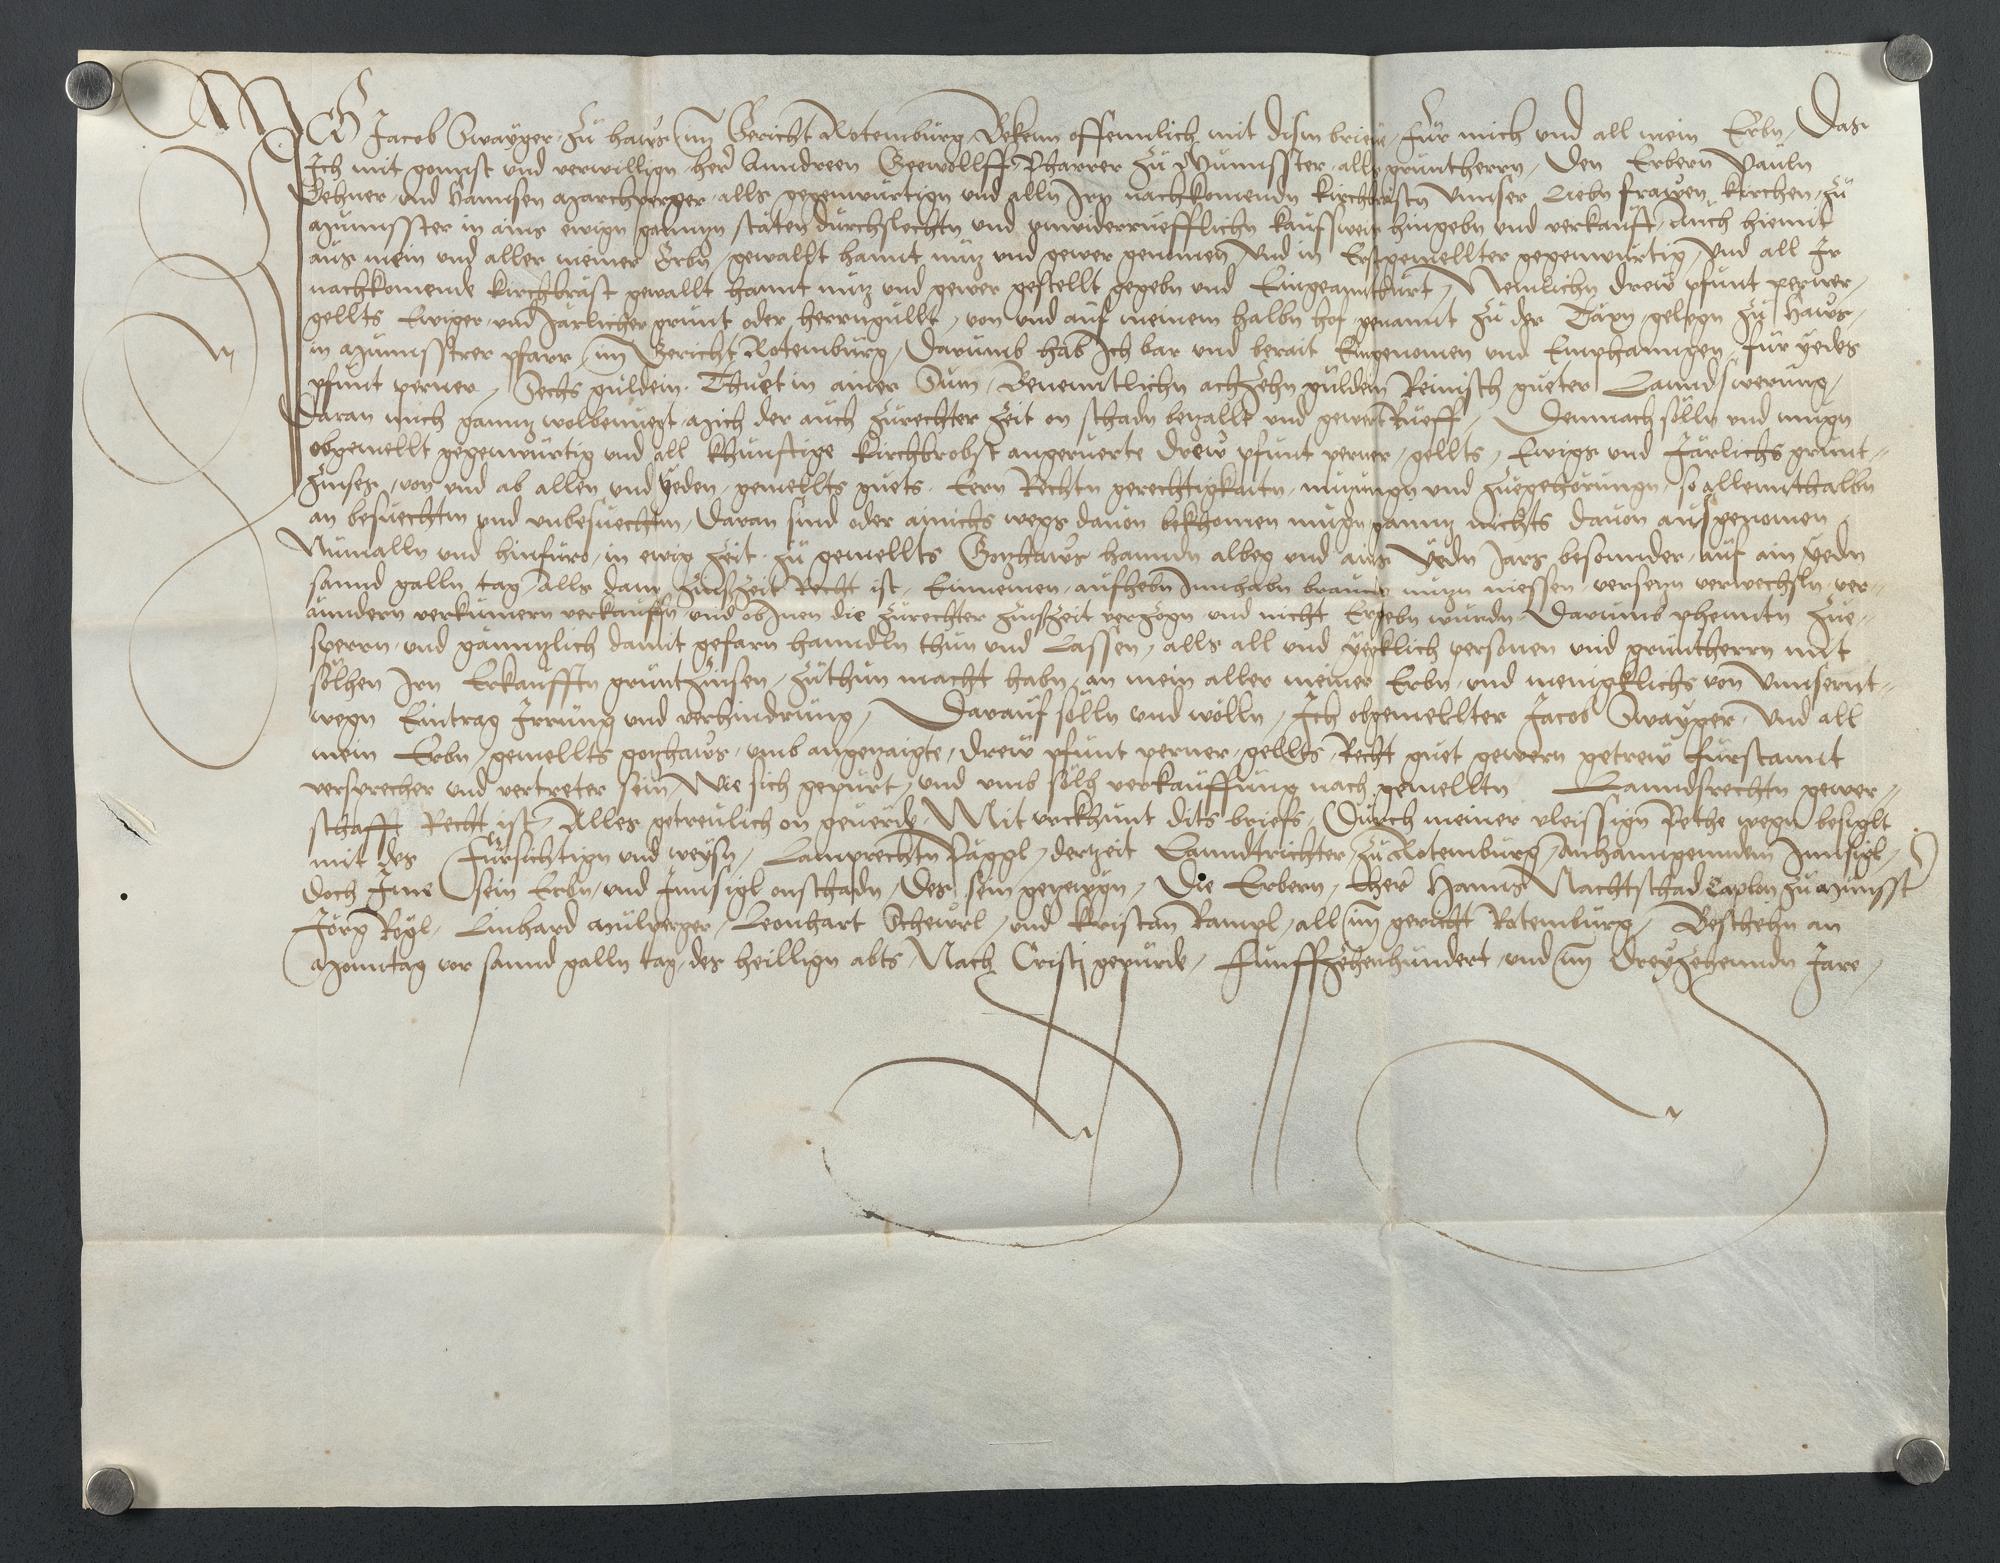 Ich Jacob Swayger zu haws im Gericht Rotemburg Bekenn offennlich mit dism brieve, fur mich und all mein Erbn, Das
Ich mit gonnst und verwilligen her Anndreen Seewollff Pharrer zu Munsster, alls gruntherrn, Den Erbern Pauln
Lehner und Hannsen Marchperger alls gegenwurtign und alln Irn nachkomendn kirchbrastn Unnser Liebn frawen kirchen zu
Munsster in ains ewign ganntzn stäten durchslechtn und unwiderruefflichn kaufsweis hingebn und verkauft, auch hiemit
aus mein und aller meiner Erbn gewallt hannt nutz und gewer genomen Und in Erstgemellter gegenwurtig, und all Ir
nachkomende kirchbräst gewallt hannt nutz und gewer gestellt gegebn und Eingeanntwurt, Nemlichn drew pfunt perner
gellts Ewiger und Järlicher grunt oder herrngullt, von und auf meinem halbn hof genannt zu der Täxn gelegn zu Haws,
in Munsstrer pfarr, im Gericht Rotemburg, Darumb hab Ich bar und berait Eingenomen und Emphanngen, fur yedes
pfunt perner, Sechs guldein. Thuet in ainer Sum, Benenntlichn achzehn guldein Reinisch gueter Lanndswerung,
Daran mich ganntz wolbenuegt Mich der auch zurechter zeit on schadn betzallt und gewert Rueff, Demnach sölln und mugn
obgemellt gegenwurtig und all khunftige kirchbrobst angeruerte drew pfunt perner, gellts, Ewigs und Järlichs grunt-
zinses, von und ab allen und yeden, gemellts guets. Eern Rechtn gerechtigkaitn, nutzungn und zuegehörungn, so allennthalbn
an besuechtm und unbesuechtm, Daran sind oder ainichs wegs davon bekhomen mugn ganntz nichts davon ausgenomen
Nunalln und hinfuro, in ewig zeit, zu gemellts Gotzhaws hanndn albeg und ains Yedn Jars besonnder, auf ain Yedn
sannd galln tag, alls dann zinszeit Recht ist, Einnemen, aufhebn Innhabn brauchn nutzn niessen, versetzn verwechsln, ver-
anndern verkumern verkauffn, und ob Inen die zurechter zinszeit vertzogn und nicht Ergebn wurdn, Darumb phenntn zue-
sperrn, und gänntzlich damit gefarn hanndln thun und Lassen, alls all und yegklich personen und gruntherrn mit
sölhen Irn Erkaufftn gruntzinsen, zuthun macht habn, an mein aller meiner Erbn, und menigklichs von Unnsernt-
wegn Eintrag Irrung und verhindrung, Darauf sölln und wölln, Ich obgemellter Jacob Swayger, Und all
mein Erbn, gemellts gotzhaws, umb angetzaigte, drew pfunt perner, gellts, Recht guet gewern getrew furstannt
versprecher und vertreter sein, Wie sich gepurt, und umb sölh verkauffung nach gemelltn Lanndsrechtn gewer-
schafft Recht ist, Alles getreulich on geverde, Mit urkhunt dits briefs, Durch meiner vleissign Pethe wegn besiglt
mit des Fursichtign und weysn, Lamprechtn Päggl, dertzeit Lanndtrichter, zu Rotemburg, Anhanngenndem Innsigl,
doch Ime sein Erbn, und Innsigl onschadn, Des sein getzewgn, Die Erbern, Hher Hanns Nachtschad Caplon zu Munsst
Jörg Rögl, Linhard Mulperger, Leonhart Schewrl, und kristan Rampl, all im gericht Rotemburg, Beschehn an
Monntag vor sannd galln tag, des heillign abts, Nach Cristi gepurde, Funffzehenhundert, und im Dreyzehenndn Jare,